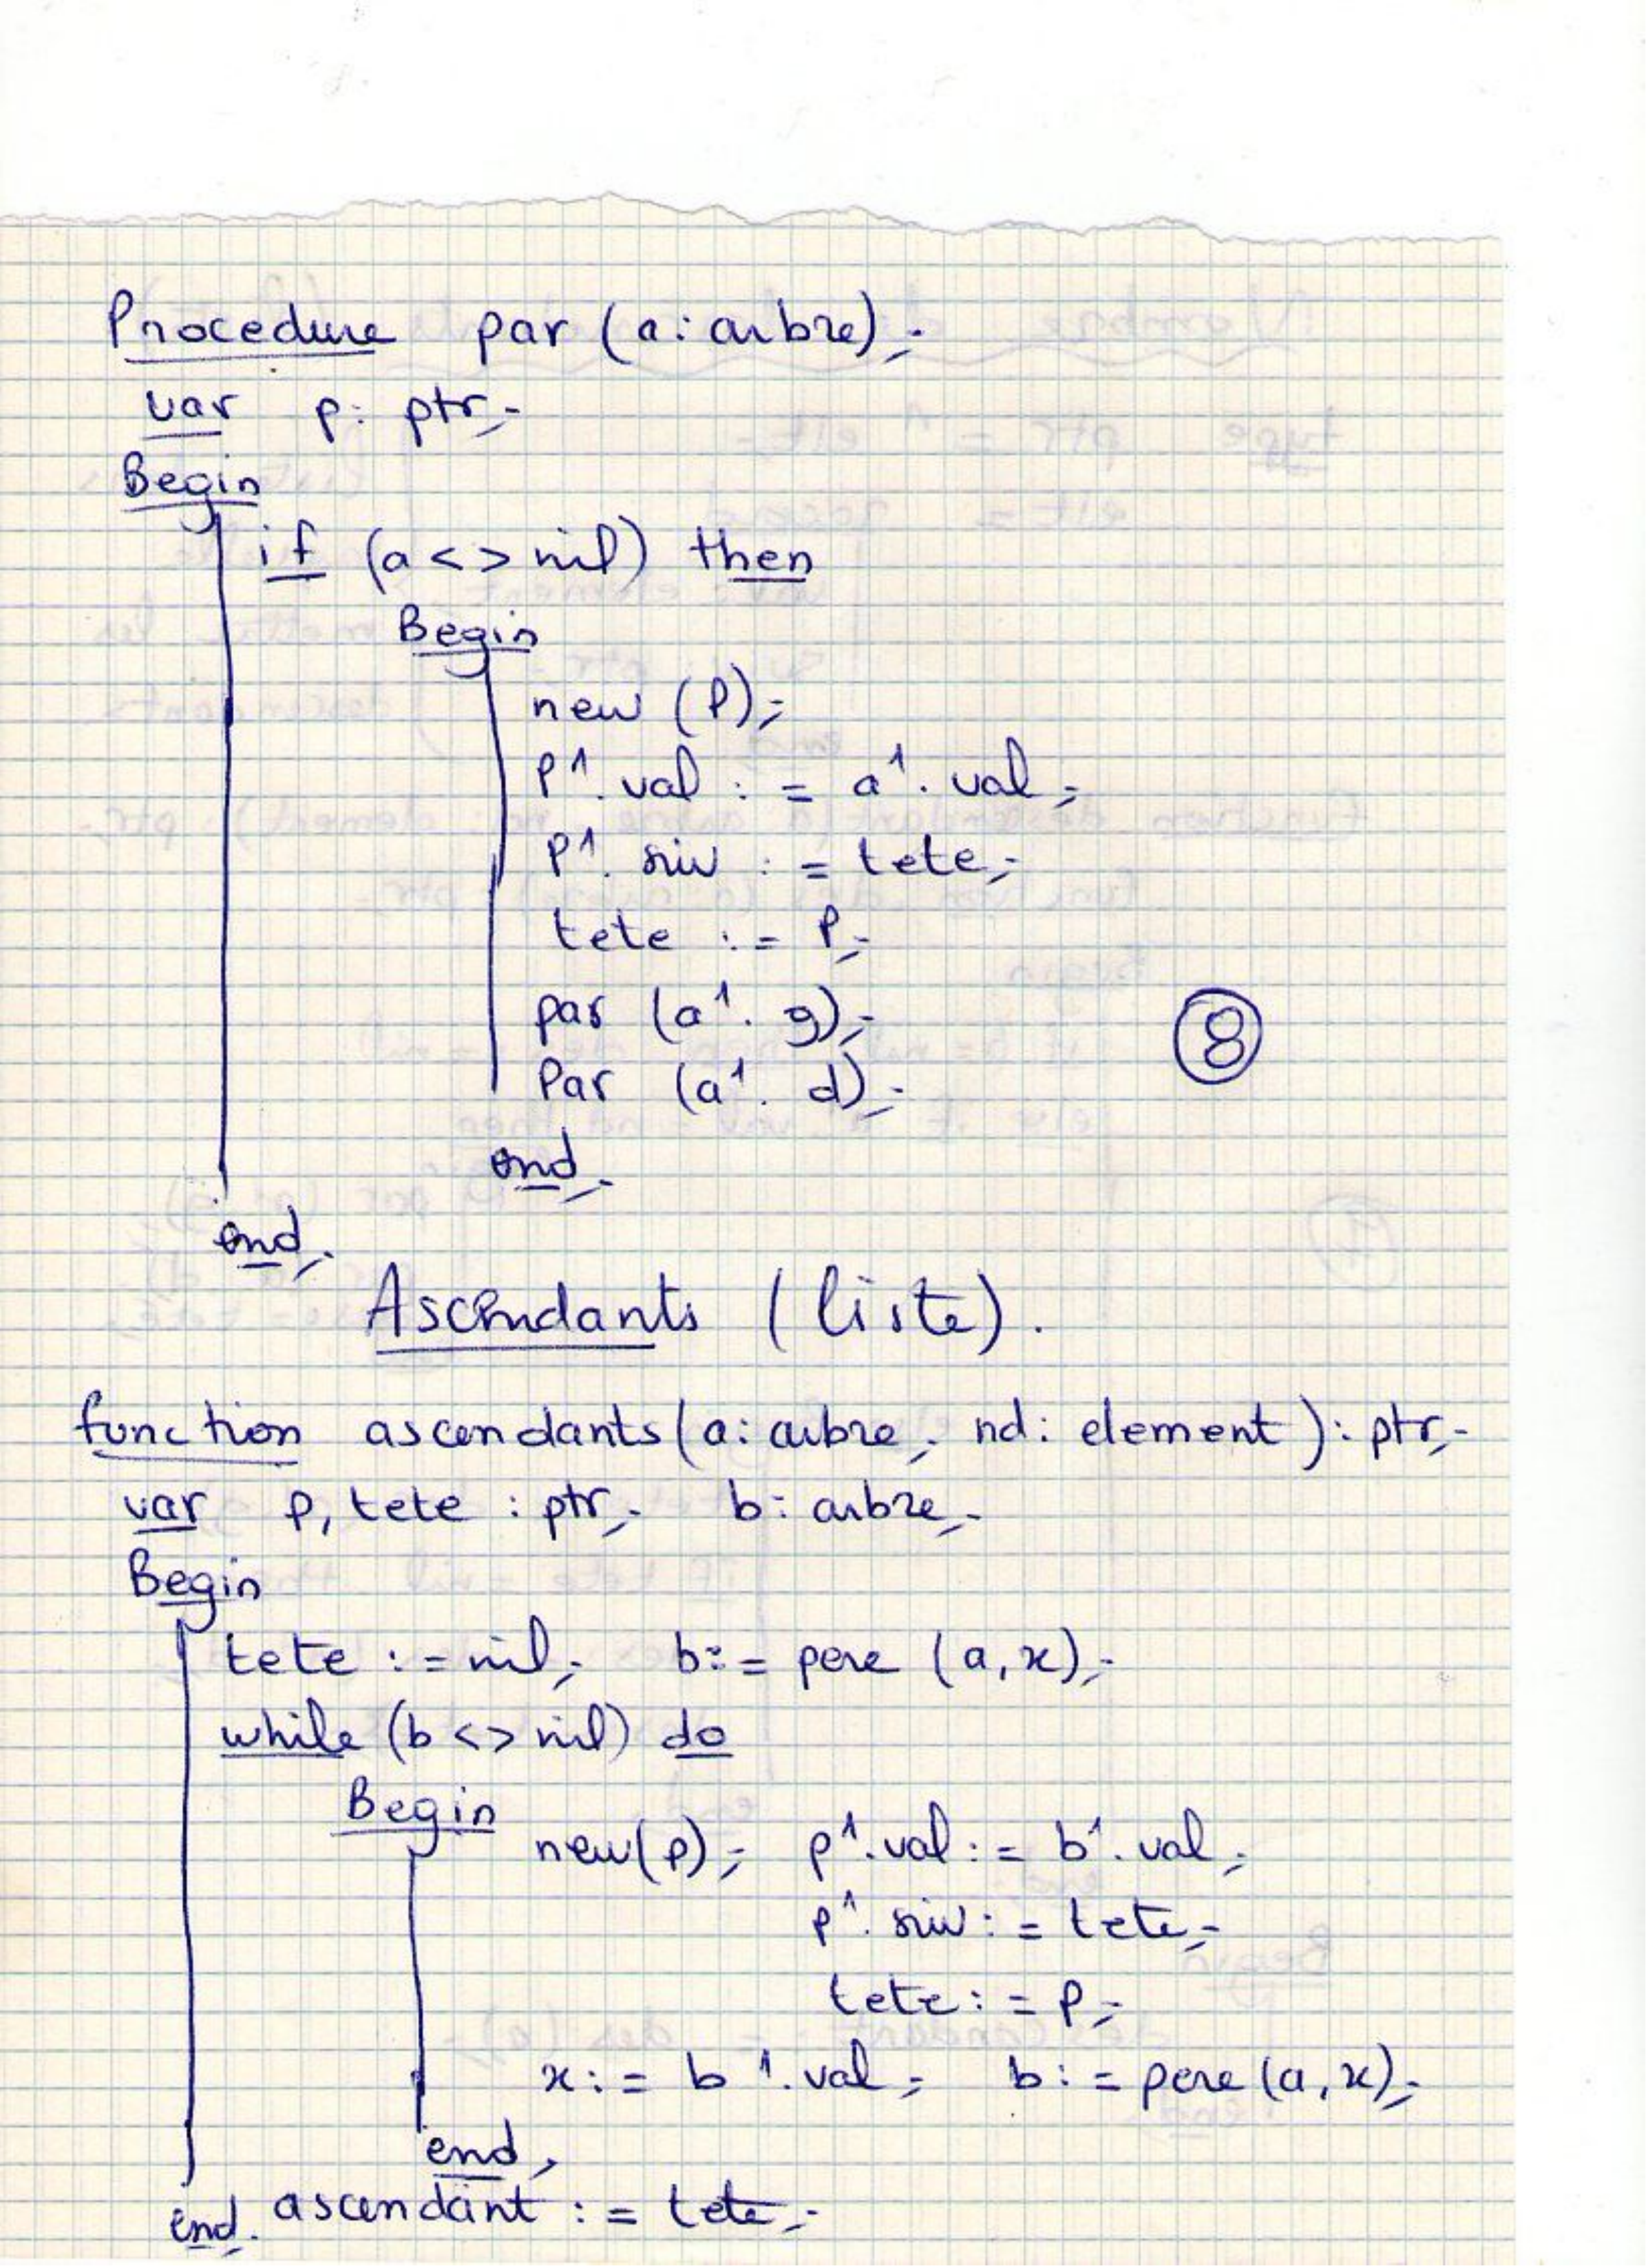 Procedure par (a: arbre);
var p: ptr;
Begin
if (a <> nil) then
Begin
new (P);
P^.val := a^.val;
P^.suiv := tete;
tete := P;
par (a^.g);
Par (a^.d);
8
end;
end;
Ascendants (liste).
function ascendants(a: arbre; nd: element): ptr;
var p, tete : ptr; b: arbre;
Begin
tete := nil; b:= pere (a, x);
while (b <> nil) do
Begin
new(p); p^.val := b^.val;
p^.suiv := tete;
tete := p;
x := b^.val; b := pere (a, x);
end;
ascendant := tete;
end;